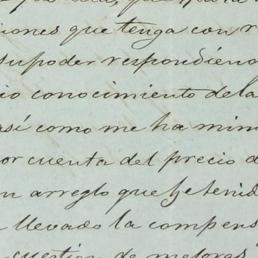 iones que tenga con r
su poder respondieno
io conocimiento de la
así como me ha mini
or cuenta del precio d
n arreglo que he tenid
llevado la compens
cuestion de mejoras